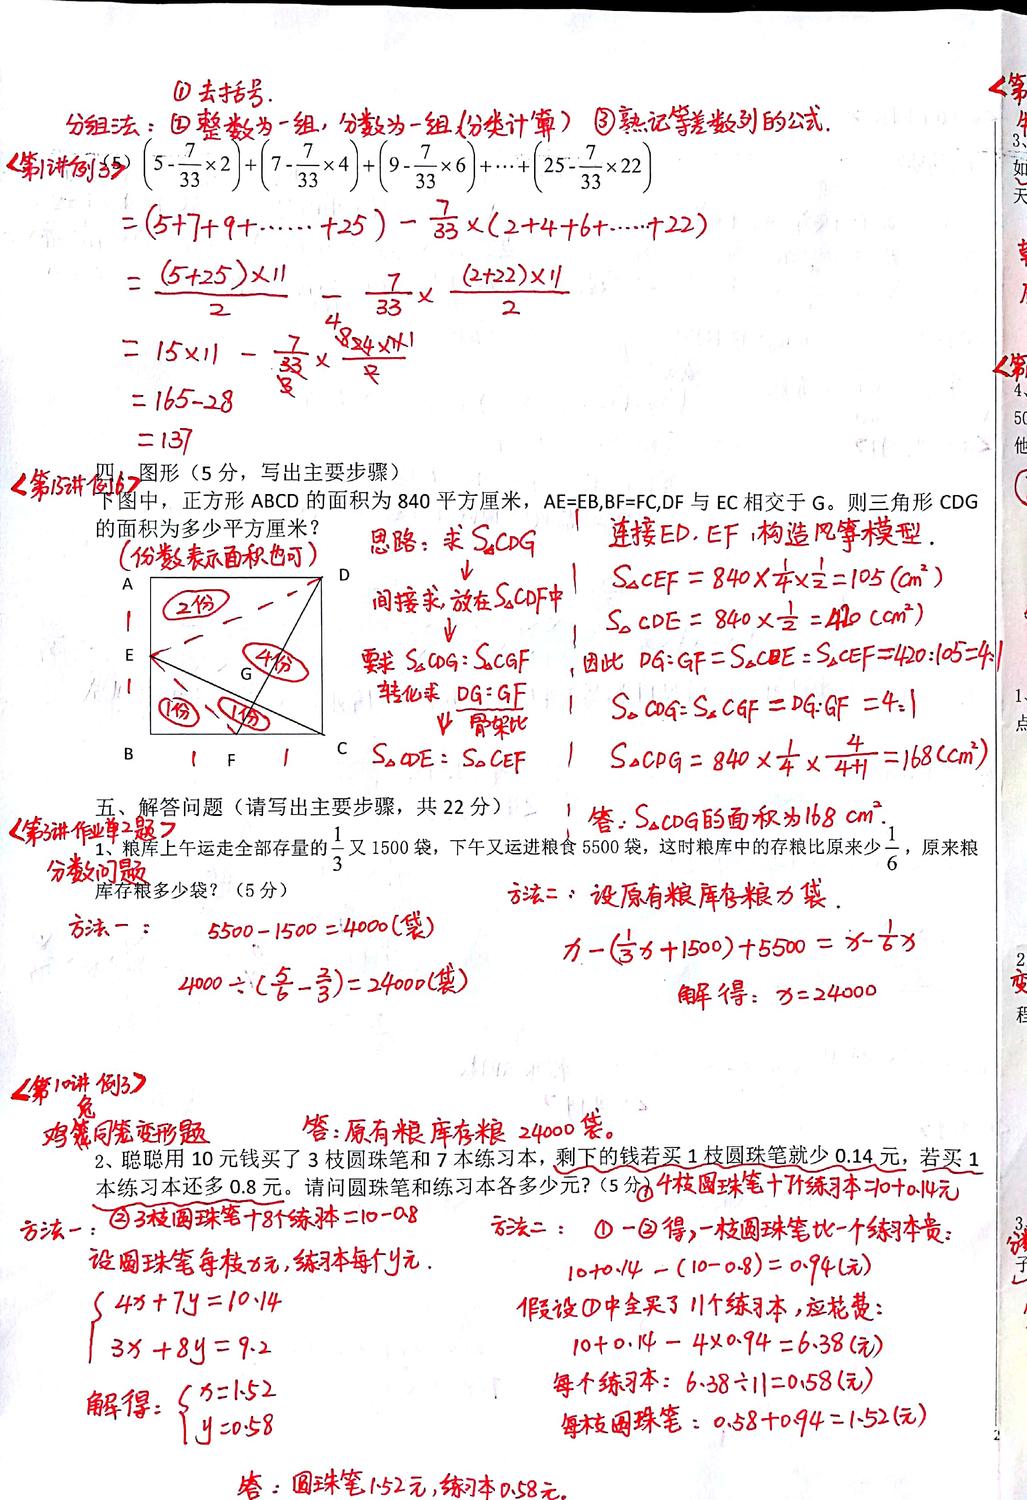 ①去括号.
分组法：②整数为一组，分数为一组（分类计算） ③熟记等差数列的公式.
<第1讲例3>（5）(5-7/33×2)+(7-7/33×4)+(9-7/33×6)+⋯+(25-7/33×22)
=(5+7+9+……+25)-7/33×(2+4+6+……+22)
=(5+25)×11/2-7/33×(2+22)×11/2
=15×11-7/33×24×11/2
=165-28
=137
四、图形（5 分，写出主要步骤）
<第15讲例6>
下图中，正方形 ABCD 的面积为 840 平方厘米，AE=EB,BF=FC,DF 与 EC 相交于 G。则三角形 CDG
的面积为多少平方厘米？
(份数表示面积也可)
A D
2份
1
E
4份
G
1
1份 1份
B 1 F 1 C
思路：求S△CDG
↓
间接求，放在S△CDF中
↓
要求 S△CDG:S△CGF
转化求 DG:GF
骨架比
S△CDE = S△CEF
连接ED、EF，构造风筝模型.
S△CEF=840×1/4×1/2=105(cm²)
S△CDE=840×1/2=420(cm²)
因此 DG:GF=S△CDE:S△CEF=420:105=4:1
S△CDG:S△CGF=DG:GF=4:1
S△CDG=840×1/4×4/4+1=168(cm²)
答：S△CDG的面积为168 cm².
五、解答问题（请写出主要步骤，共 22 分）
<第3讲作业单2题>
1、粮库上午运走全部存量的1/3又 1500 袋，下午又运进粮食 5500 袋，这时粮库中的存粮比原来少1/6，原来粮
分数问题
库存粮多少袋？（5 分）
方法一：
5500-1500=4000(袋)
4000÷(5/6-2/3)=24000(袋)
方法二：设原有粮库存粮x袋.
x-(1/3x+1500)+5500=x-1/6x
解得：x=24000
<第10讲 例3>
鸡兔同笼变形题
答：原有粮库存粮 24000袋。
2、聪聪用 10 元钱买了 3 枝圆珠笔和 7 本练习本，剩下的钱若买 1 枝圆珠笔就少 0.14 元，若买 1
本练习本还多 0.8 元。请问圆珠笔和练习本各多少元？（5 分）
①4枝圆珠笔+7个练习本=10+0.14元
②3枝圆珠笔+8个练习本=10-0.8
方法一：
设圆珠笔每枝x元，练习本每个y元.
4x+7y=10.14
3x+8y=9.2
解得：x=1.52
y=0.58
方法二：①-②得，一枝圆珠笔比一个练习本贵：
10+0.14-(10-0.8)=0.94(元)
假设①中全买了11个练习本，应花费：
10+0.14-4×0.94=6.38(元)
每个练习本：6.38÷11=0.58(元)
每枝圆珠笔：0.58+0.94=1.52(元)
2
答：圆珠笔1.52元，练习本0.58元。